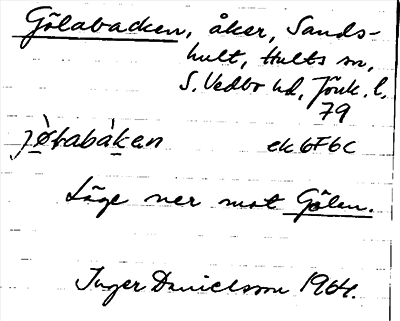 Gölabacken, åker, Sands-
hult, Hults sn,
S. Vedbo hd, Jönk. l.
79
jø̀tabàkan ek 6F6c
Läge ner mot Gölen.
Inger Danielsson 1964.